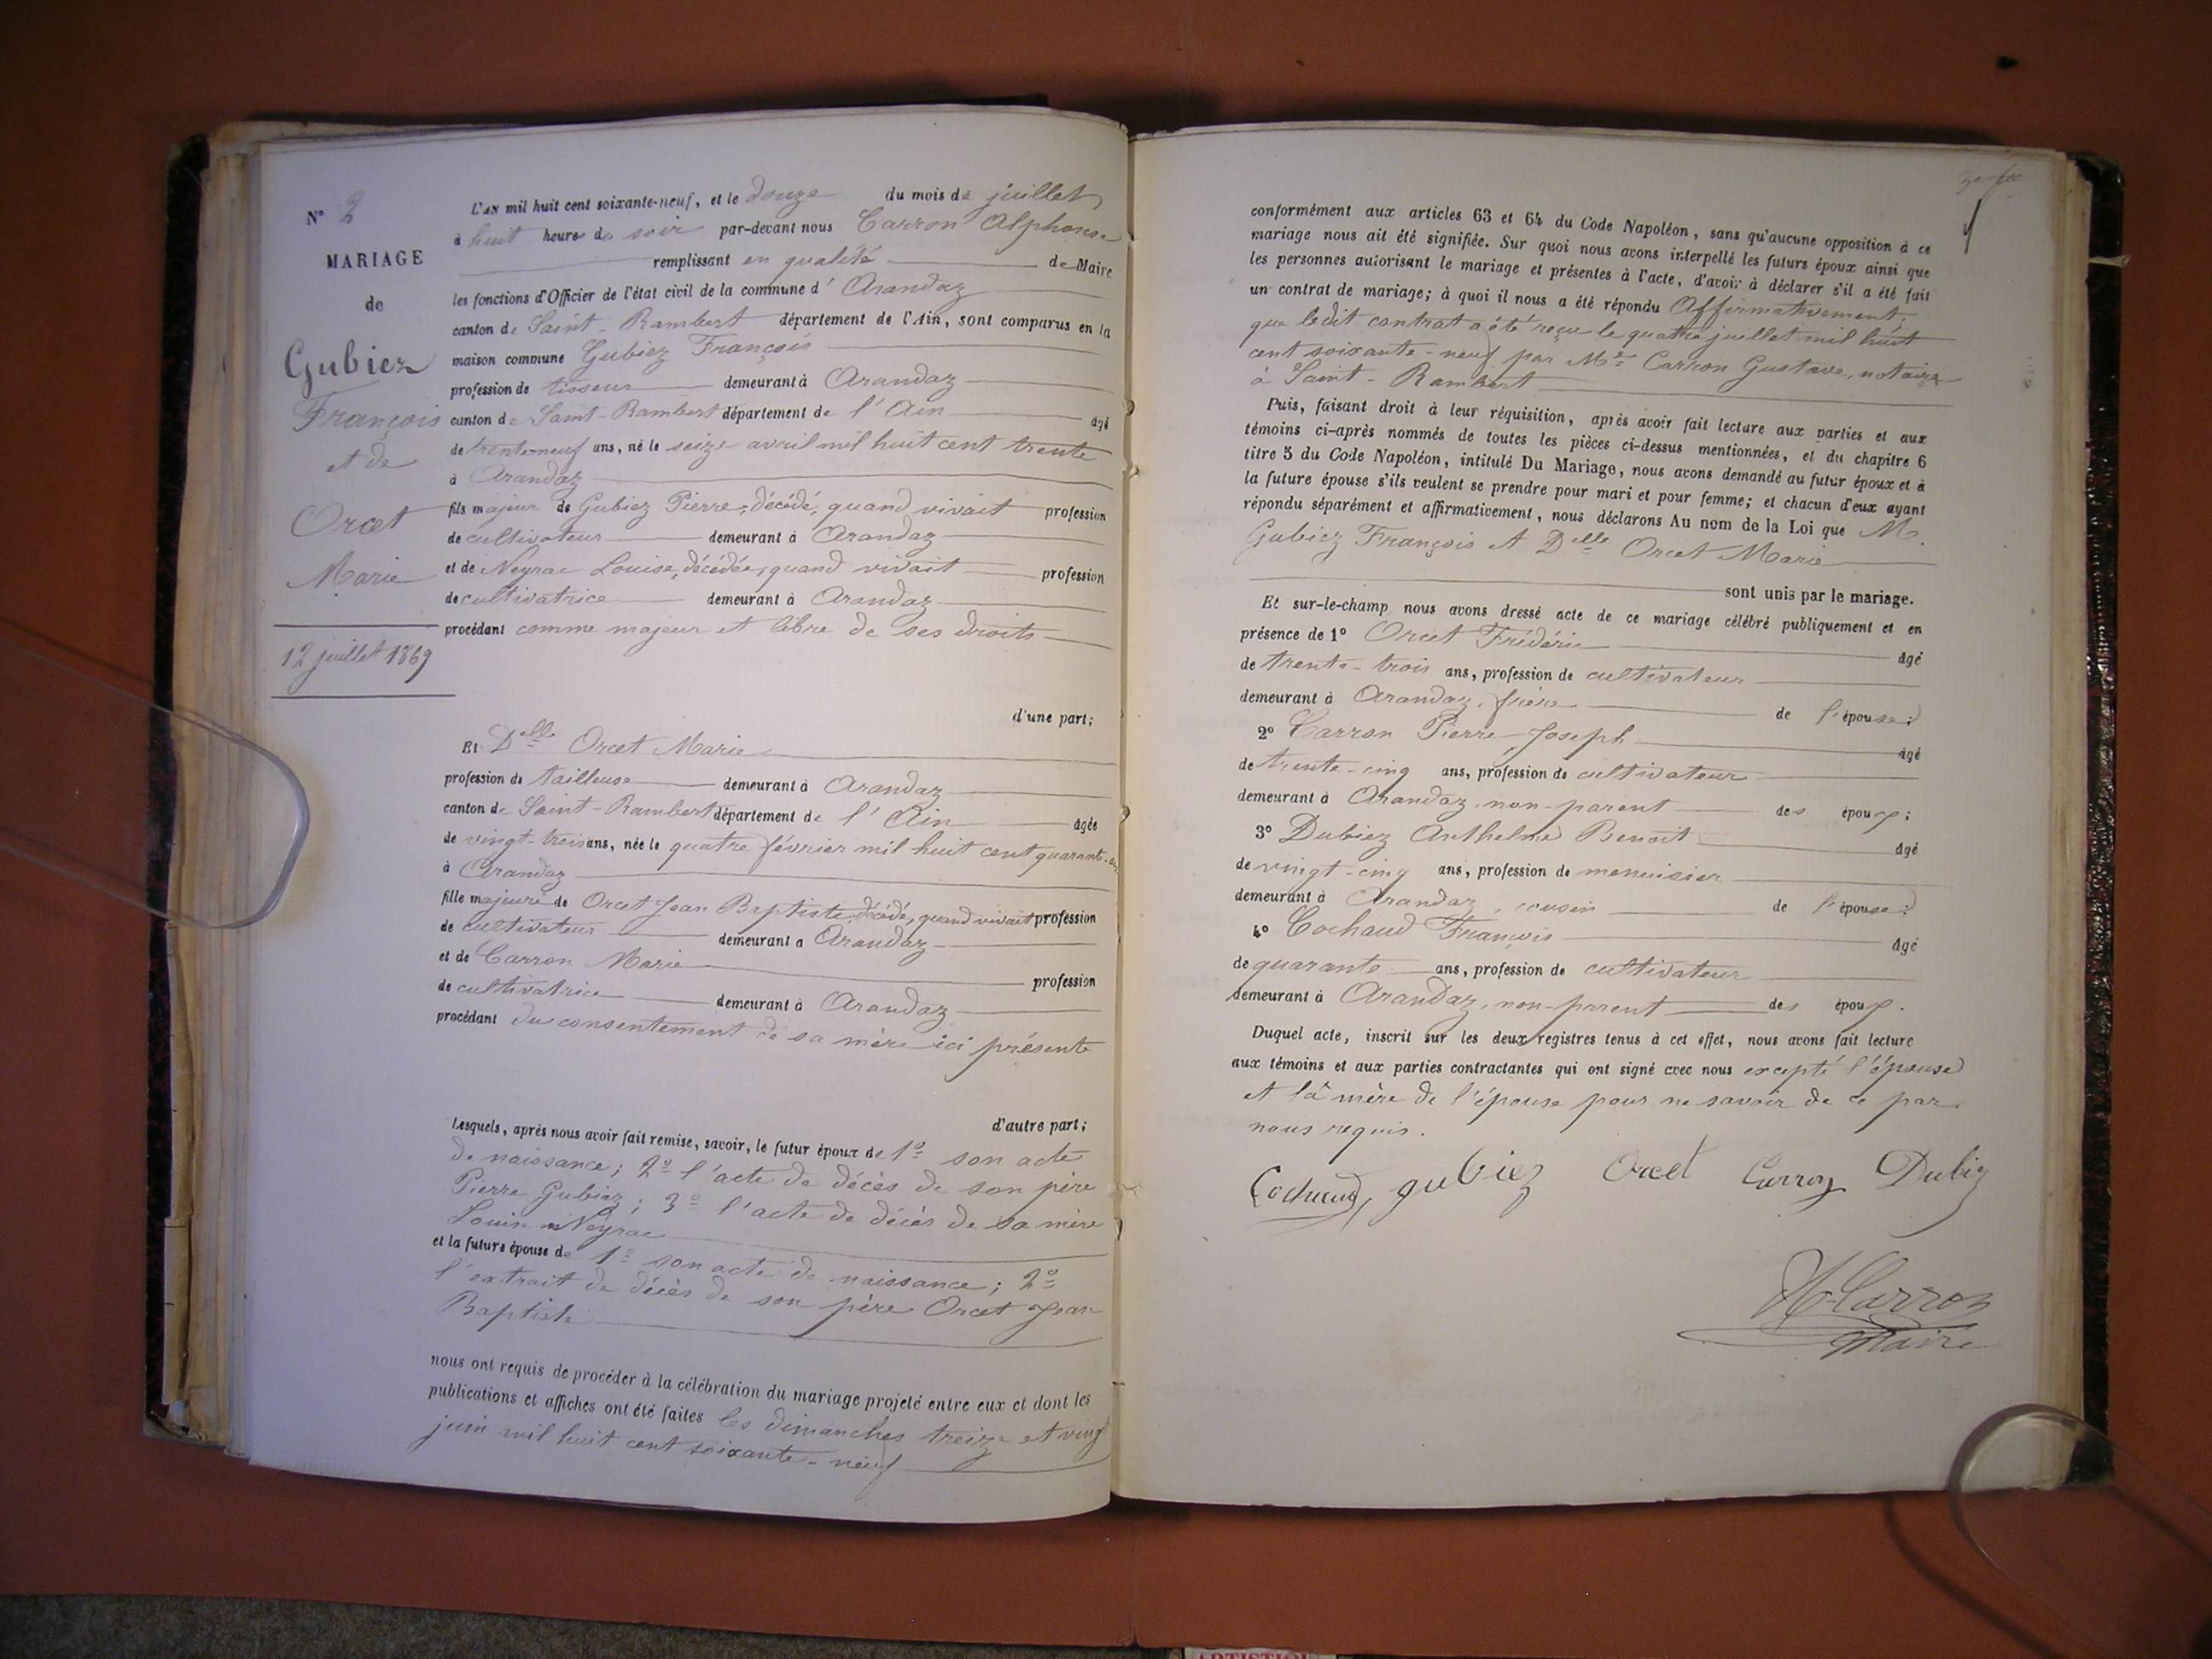 N° 2
MARIAGE
de
Gubiez
François
et de
Orcet
Marie
12 juillet 1869
L'AN mil huit cent soixante-neuf, et le douze du mois de juillet
à huit heures du soir par-devant nous Carron Alphonse
remplissant en qualité de Maire
les fonctions d'Officier de l'état civil de la commune d' Arandaz
canton de Saint-Rambert département de l'Ain, sont comparus en la
maison commune Gubiez François
profession de tisseur demeurant à Arandaz
canton de Saint-Rambert département de l'Ain âgé
de trente-neuf ans, né le seize avril mil huit cent trente
à Arandaz
fils majeur de Gubiez Pierre, décédé, quand vivait profession
de cultivateur demeurant à Arandaz
et de Neyrac Louise, décédée, quand vivait profession
de cultivatrice demeurant à Arandaz
procédant comme majeur et libre de ses droits
d'une part;
Et Delle Orcet Marie
profession de tailleuse demeurant à Arandaz
canton de Saint-Rambert département de l'Ain âgée
de vingt-trois ans, née le quatre février mil huit cent quarante-
à Arandaz
fille majeure de Orcet Jean Baptiste, décédé, quand vivait profession
de cultivateur demeurant a Arandaz
et de Carron Marie profession
de cultivatrice demeurant à Arandaz
procédant du consentement de sa mère ici présente
d'autre part;
Lesquels, après nous avoir fait remise, savoir, le futur époux de 1° son acte
de naissance; 2° l'acte de décès de son père
Pierre Gubiez; 3° l'acte de décès de sa mère
Louise Neyrac
et la future épouse de 1° son acte de naissance; 2°
l'extrait de décès de son père Orcet Jean
Baptiste
nous ont requis de procéder à la célébration du mariage projeté entre eux et dont les
publications et affiches ont été faites les dimanches treize et vingt
juin mil huit cent soixante-neuf
conformément aux articles 63 et 64 du Code Napoléon, sans qu'aucune opposition à ce
mariage nous ait été signifiée. Sur quoi nous avons interpellé les futurs époux ainsi que
les personnes autorisant le mariage et présentes à l'acte, d'avoir à déclarer s'il a été fait
un contrat de mariage; à quoi il nous a été répondu Affirmativement,
que ledit contrat a été reçu le quatre juillet mil huit
cent soixante-neuf par Me Carron Gustave, notaire
à Saint-Rambert
Puis, faisant droit à leur réquisition, après avoir fait lecture aux parties et aux
témoins ci-après nommés de toutes les pièces ci-dessus mentionnées, et du chapitre 6
titre 5 du Code Napoléon, intitulé Du Mariage, nous avons demandé au futur époux et à
la future épouse s'ils veulent se prendre pour mari et pour femme; et chacun d'eux ayant
répondu séparément et affirmativement, nous déclarons Au nom de la Loi que M.
Gubiez François et Delle Orcet Marie
sont unis par le mariage.
Et sur-le-champ nous avons dressé acte de ce mariage célébré publiquement et en
présence de 1° Orcet Frédéric âgé
de trente-trois ans, profession de cultivateur
demeurant à Arandaz, frère de l'épouse;
2° Carron Pierre Joseph âgé
de trente-cinq ans, profession de cultivateur
demeurant à Arandaz, non-parent des époux;
3° Dubiez Anthelme Benoit âgé
de vingt-cinq ans, profession de menuisier
demeurant à Arandaz, cousin de l'épouse;
4° Cochaud François âgé
de quarante ans, profession de cultivateur
demeurant à Arandaz, non-parent des époux.
Duquel acte, inscrit sur les deux registres tenus à cet effet, nous avons fait lecture
aux témoins et aux parties contractantes qui ont signé avec nous excepté l'épouse
et la mère de l'épouse pour ne savoir de ce par
nous requis.
Cochaud, gubiez Orcet Carron Dubiez
Carron
Maire